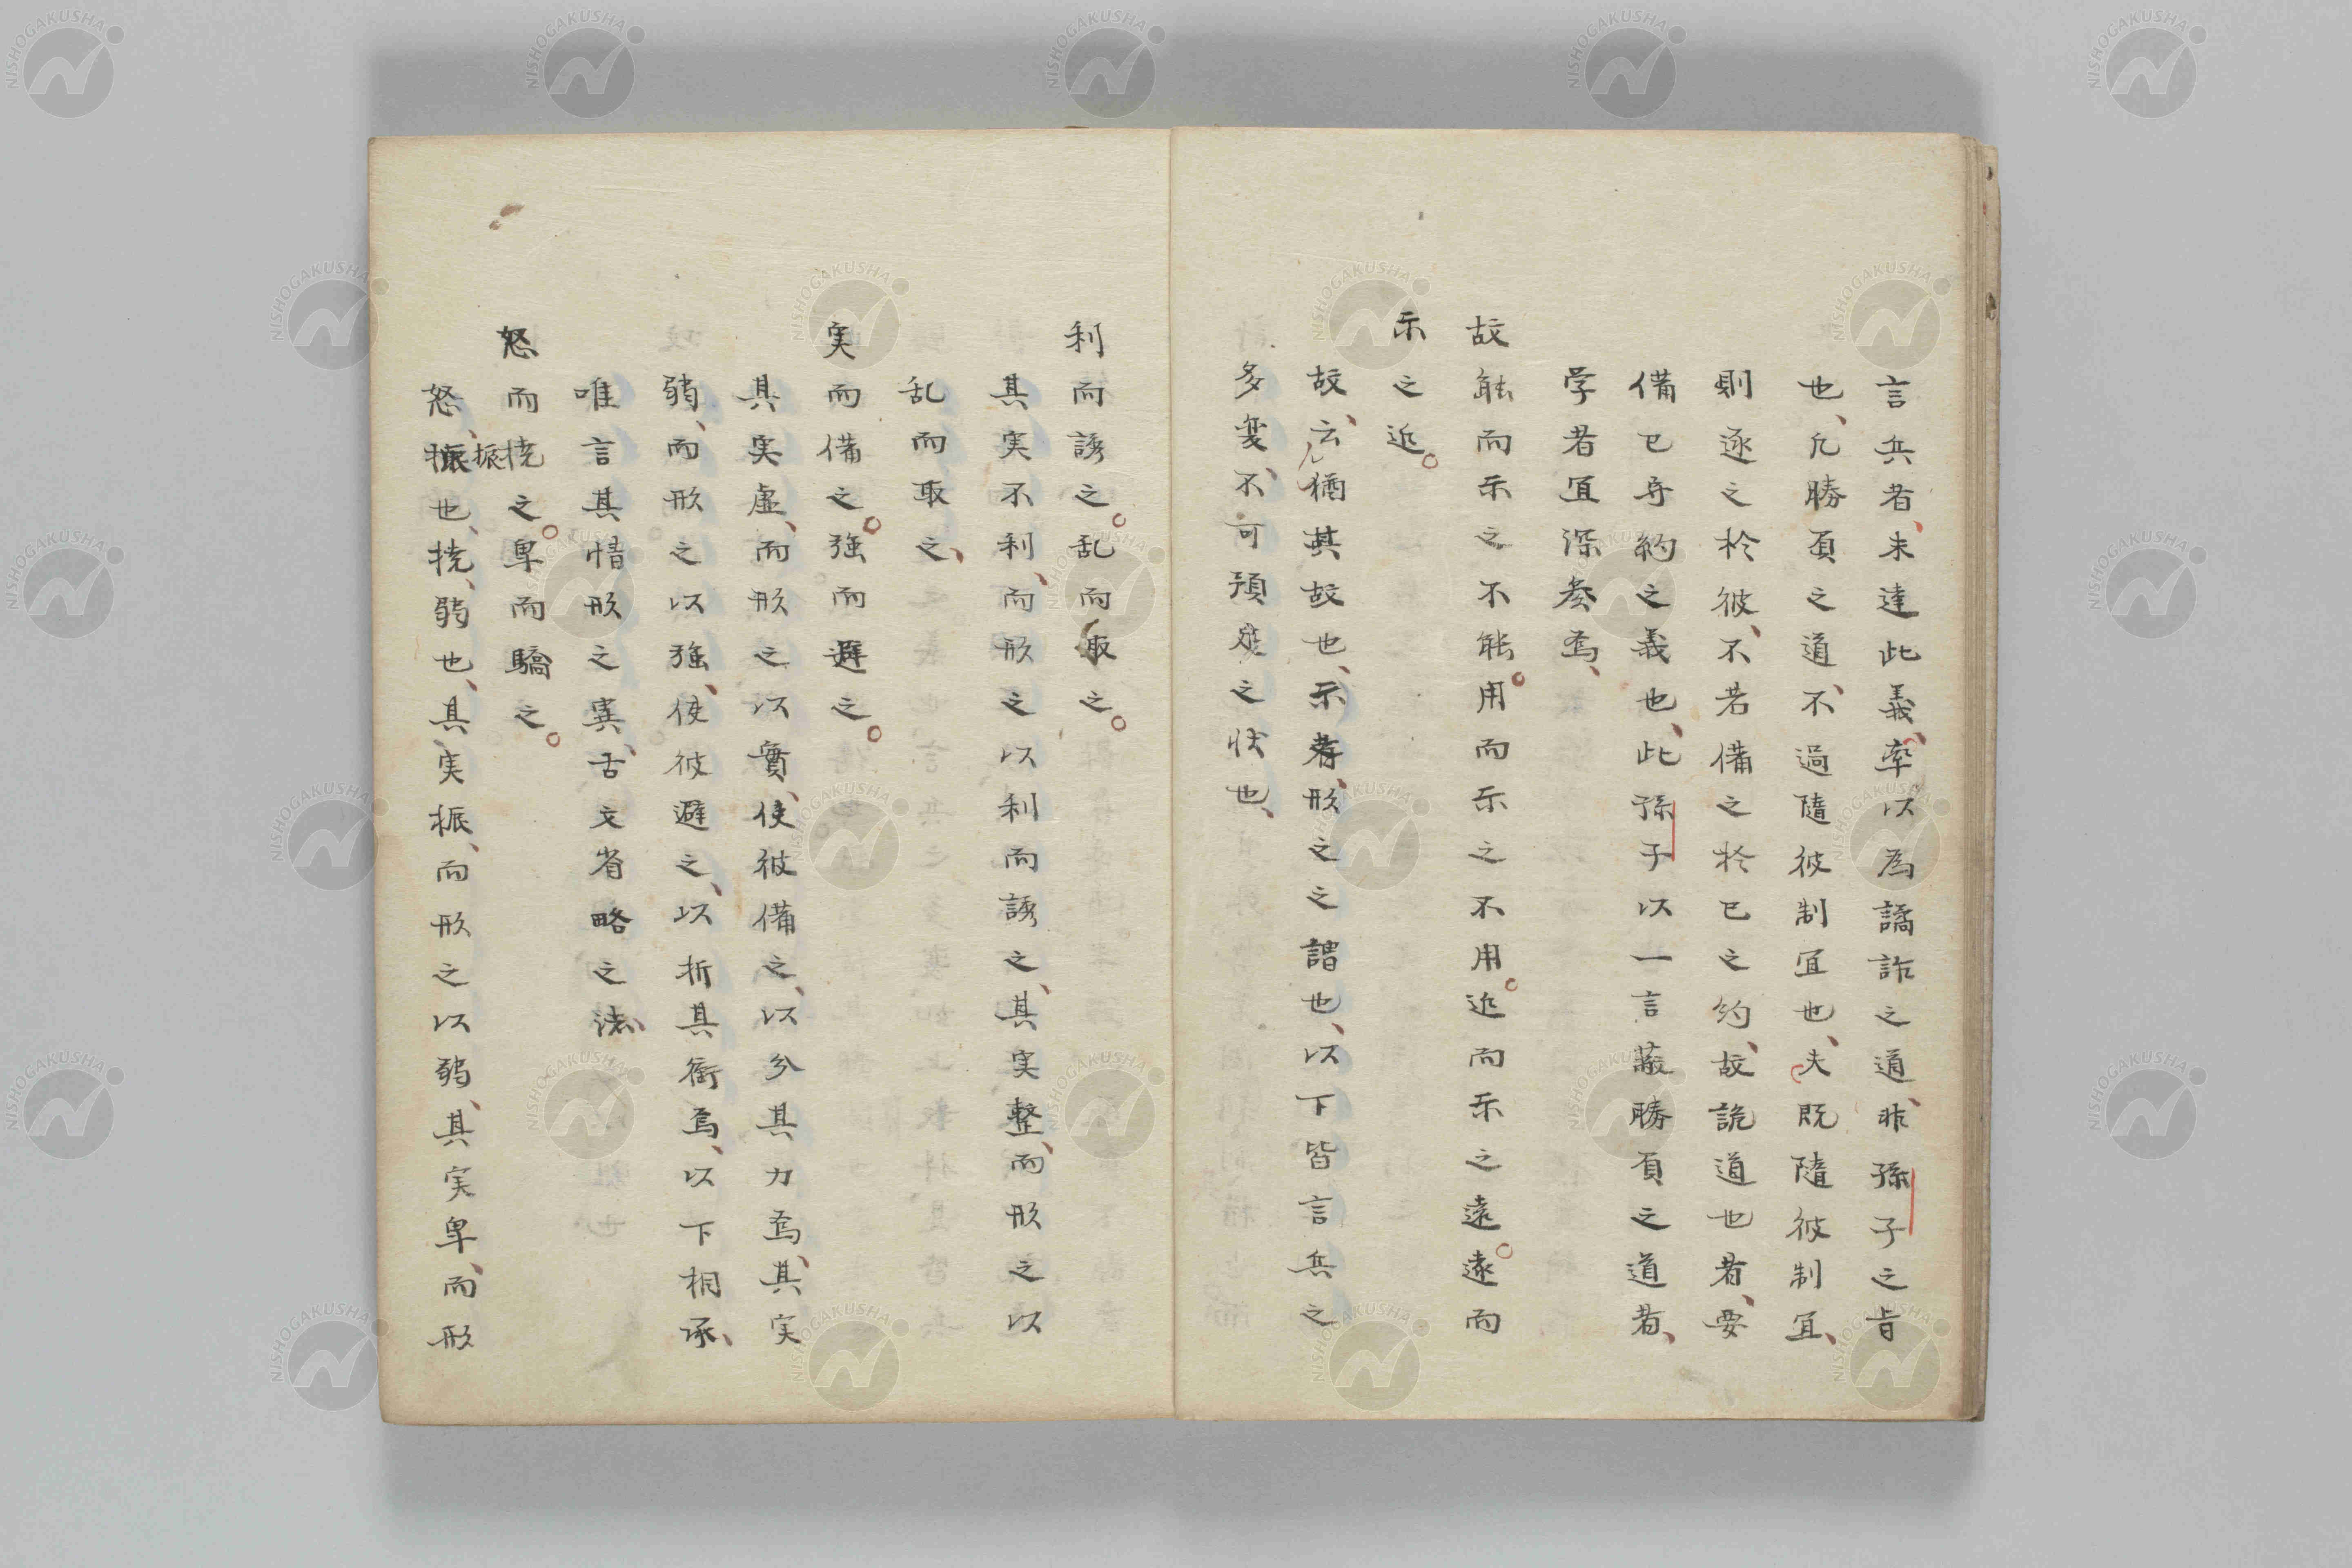 言兵者未達此義、率以為譎詐之道、非孫子之旨
也、凡勝負之道、不過隨彼制宜也、夫既隨彼制宜、
則逐之於彼、不若備之於已之約、故詭道也者、要
備已守約之義也、此孫子以一言蔽勝負之道者、
学者宜深考焉、
故能而示之不能。用而示之不用。近而示之遠。遠而
示之近。
故、云猶其故也、示者、形之之謂也、以下皆言兵之
多変、不可預定之状也、
利而誘之。乱而取之。
其実不利、而形之以利而誘之、其実整、而形之以
乱而取之、
実而備之。強而避之。
其実虚、而形之以實、使彼備之、以分其力焉、其実
弱、而形之以強、使彼避之、以折其衝焉、以下相承、
唯言其情形之異、古文省略之法、
怒而撓之。卑而驕之。
怒、振也、撓、弱也、其実振、而形之以弱、其実卑、而形
振
NISHOGAKUSHA